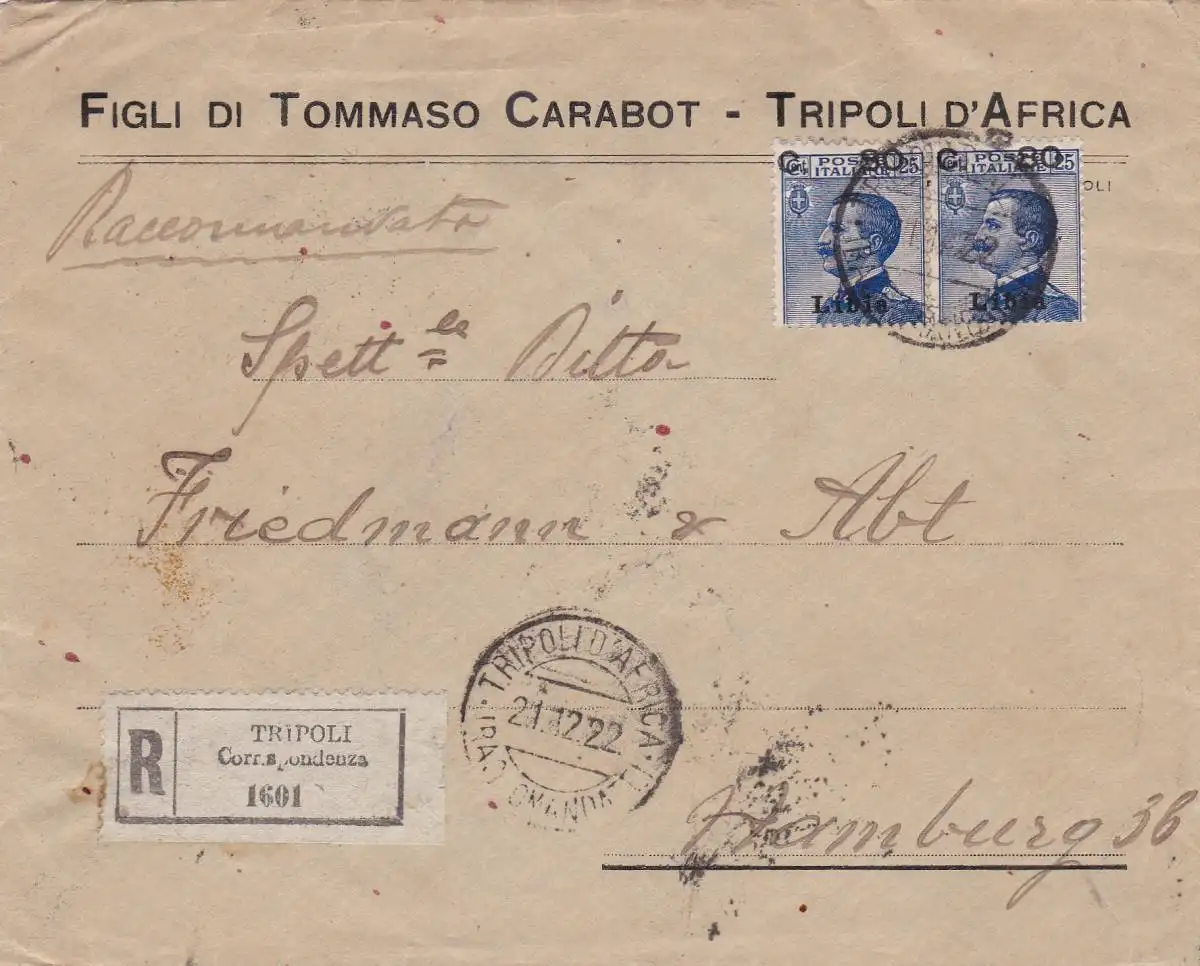 FIGLI DI TOMMASO CARABOT - TRIPOLI D'AFRICA
C. 80 C. 80
POSTE 25 POSTE 25
ITALIANE ITALIANE
OLI
Raccommandata
Libia Libia
Spett.le Ditta
Friedmann & Abt
TRIPOLI D'AFRICA
21.12.22
R
TRIPOLI
Corrispondenza
1601
Hamburg 36